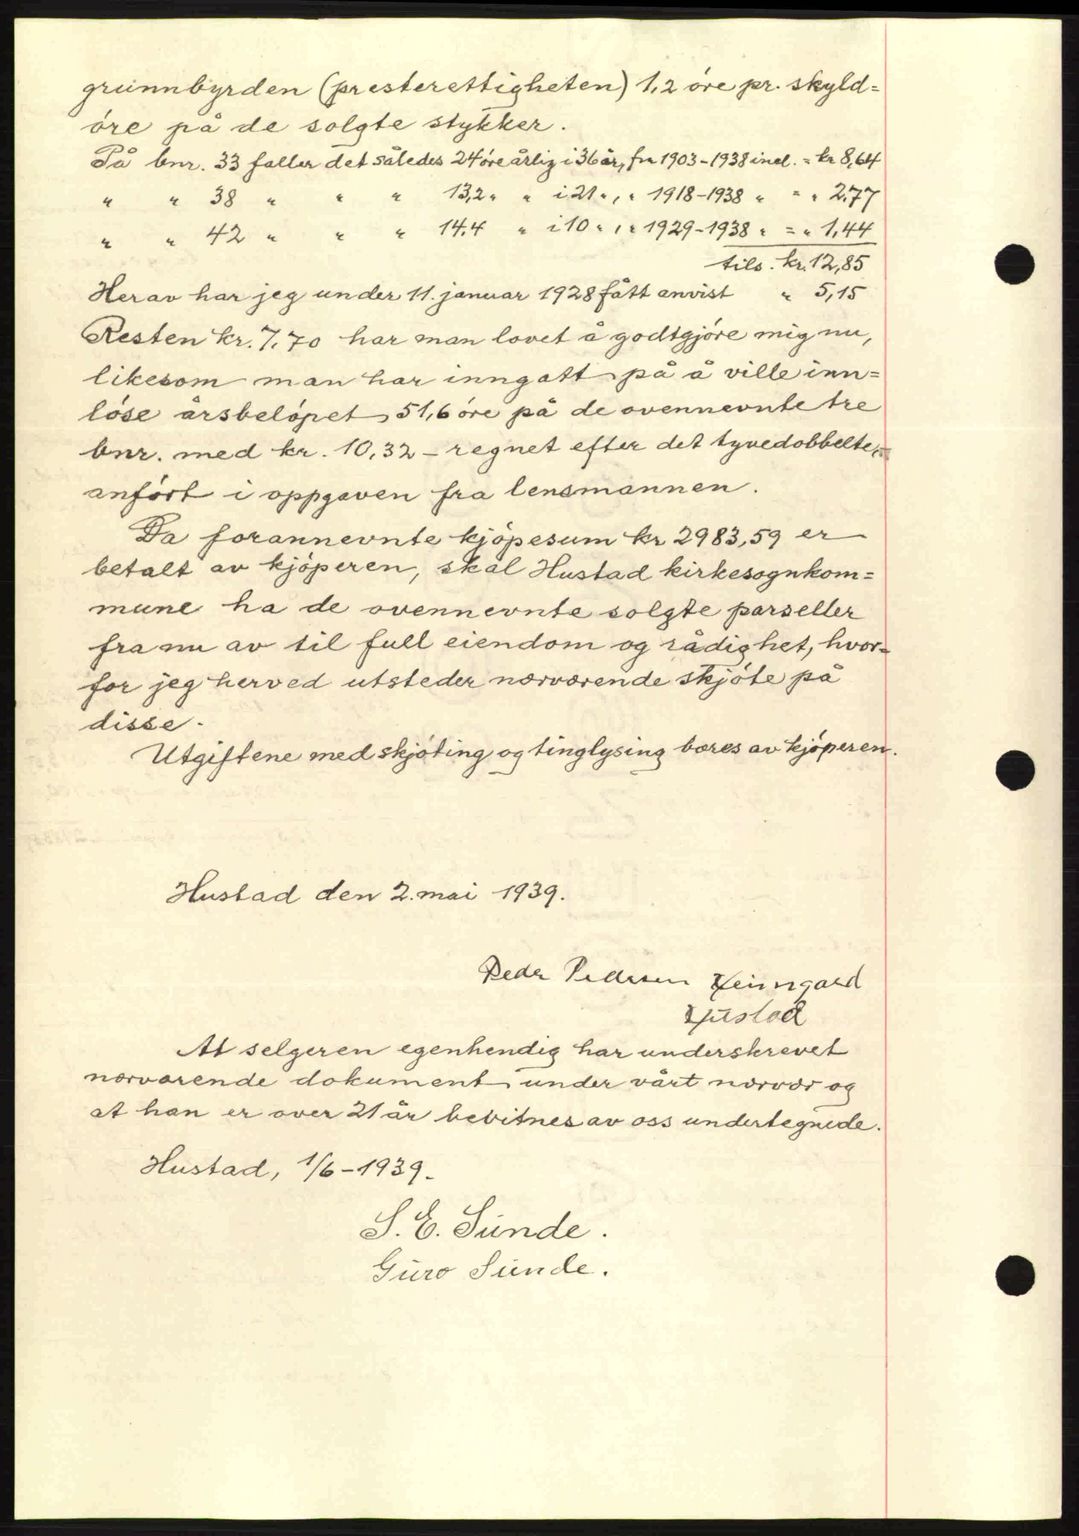 grunnbyrden (presterettigheten) 1,2 öre pr. skyld=
öre på de solgte stykker.
På bnr. 33 faller det således 24 öre årlig i 36 år, fra 1903-1938 incl. = kr 8,64
" " 38 " " " 13,2 " " i 21 " , " 1918-1938 " = " 2,77
" " 42 " " " 14.4 " i 10 " , " 1929-1938 " = " 1,44
tils. kr. 12,85
Herav har jeg under 11. januar 1928 fått anvist " 5,15
Resten kr. 7,70 har man lovet å godtgjöre mig nu,
likesom man har inngått på å ville inn=
löse årsbelöpet 51,6 öre på de ovennevnte tre
bnr. med kr. 10,32 - regnet efter det tyvedobbelte,
anfört i oppgaven fra lensmannen.
Da forannevnte kjöpesum kr 2983,59 er
betalt av kjöperen, skal Hustad kirkesognkom=
mune ha de ovennevnte solgte parseller
fra nu av til full eiendom og rådighet, hvor=
for jeg herved utsteder nærværende skjöte på
disse.
Utgiftene med skjöting og tinglysing bæres av kjöperen.
Hustad den 2. mai 1939.
Peder Pedersen Heimgard
Hustad
At selgeren egenhendig har underskrevet
nærværende dokument under vårt nærvær og
at han er over 21 år bevitnes av oss undertegnede.
Hustad, 1/6-1939.
S. E. Sunde.
Guro Sunde.